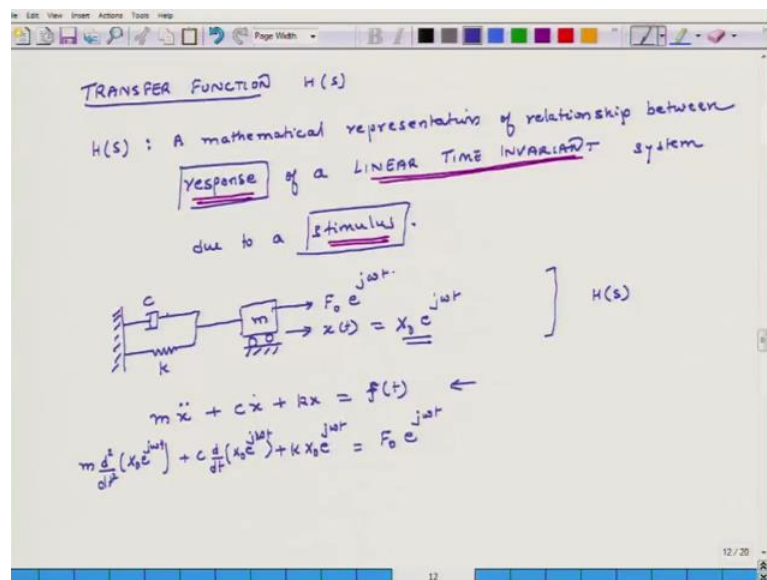 File Edit View Insert Actions Tools Help
Page Width
TRANSFER FUNCTION H(S)
H(S) : A mathematical representation of relationship between
response of a LINEAR TIME INVARIANT system
due to a stimulus.
C
m → F₀ e^{jωt}
→ x(t) = X₀ e^{jωt} ] H(S)
k
mẍ + cẋ + kx = f(t) ←
m d²/dt² (X₀e^{jωt}) + c d/dt (X₀e^{jωt}) + k X₀e^{jωt} = F₀ e^{jωt}
12 / 20
12